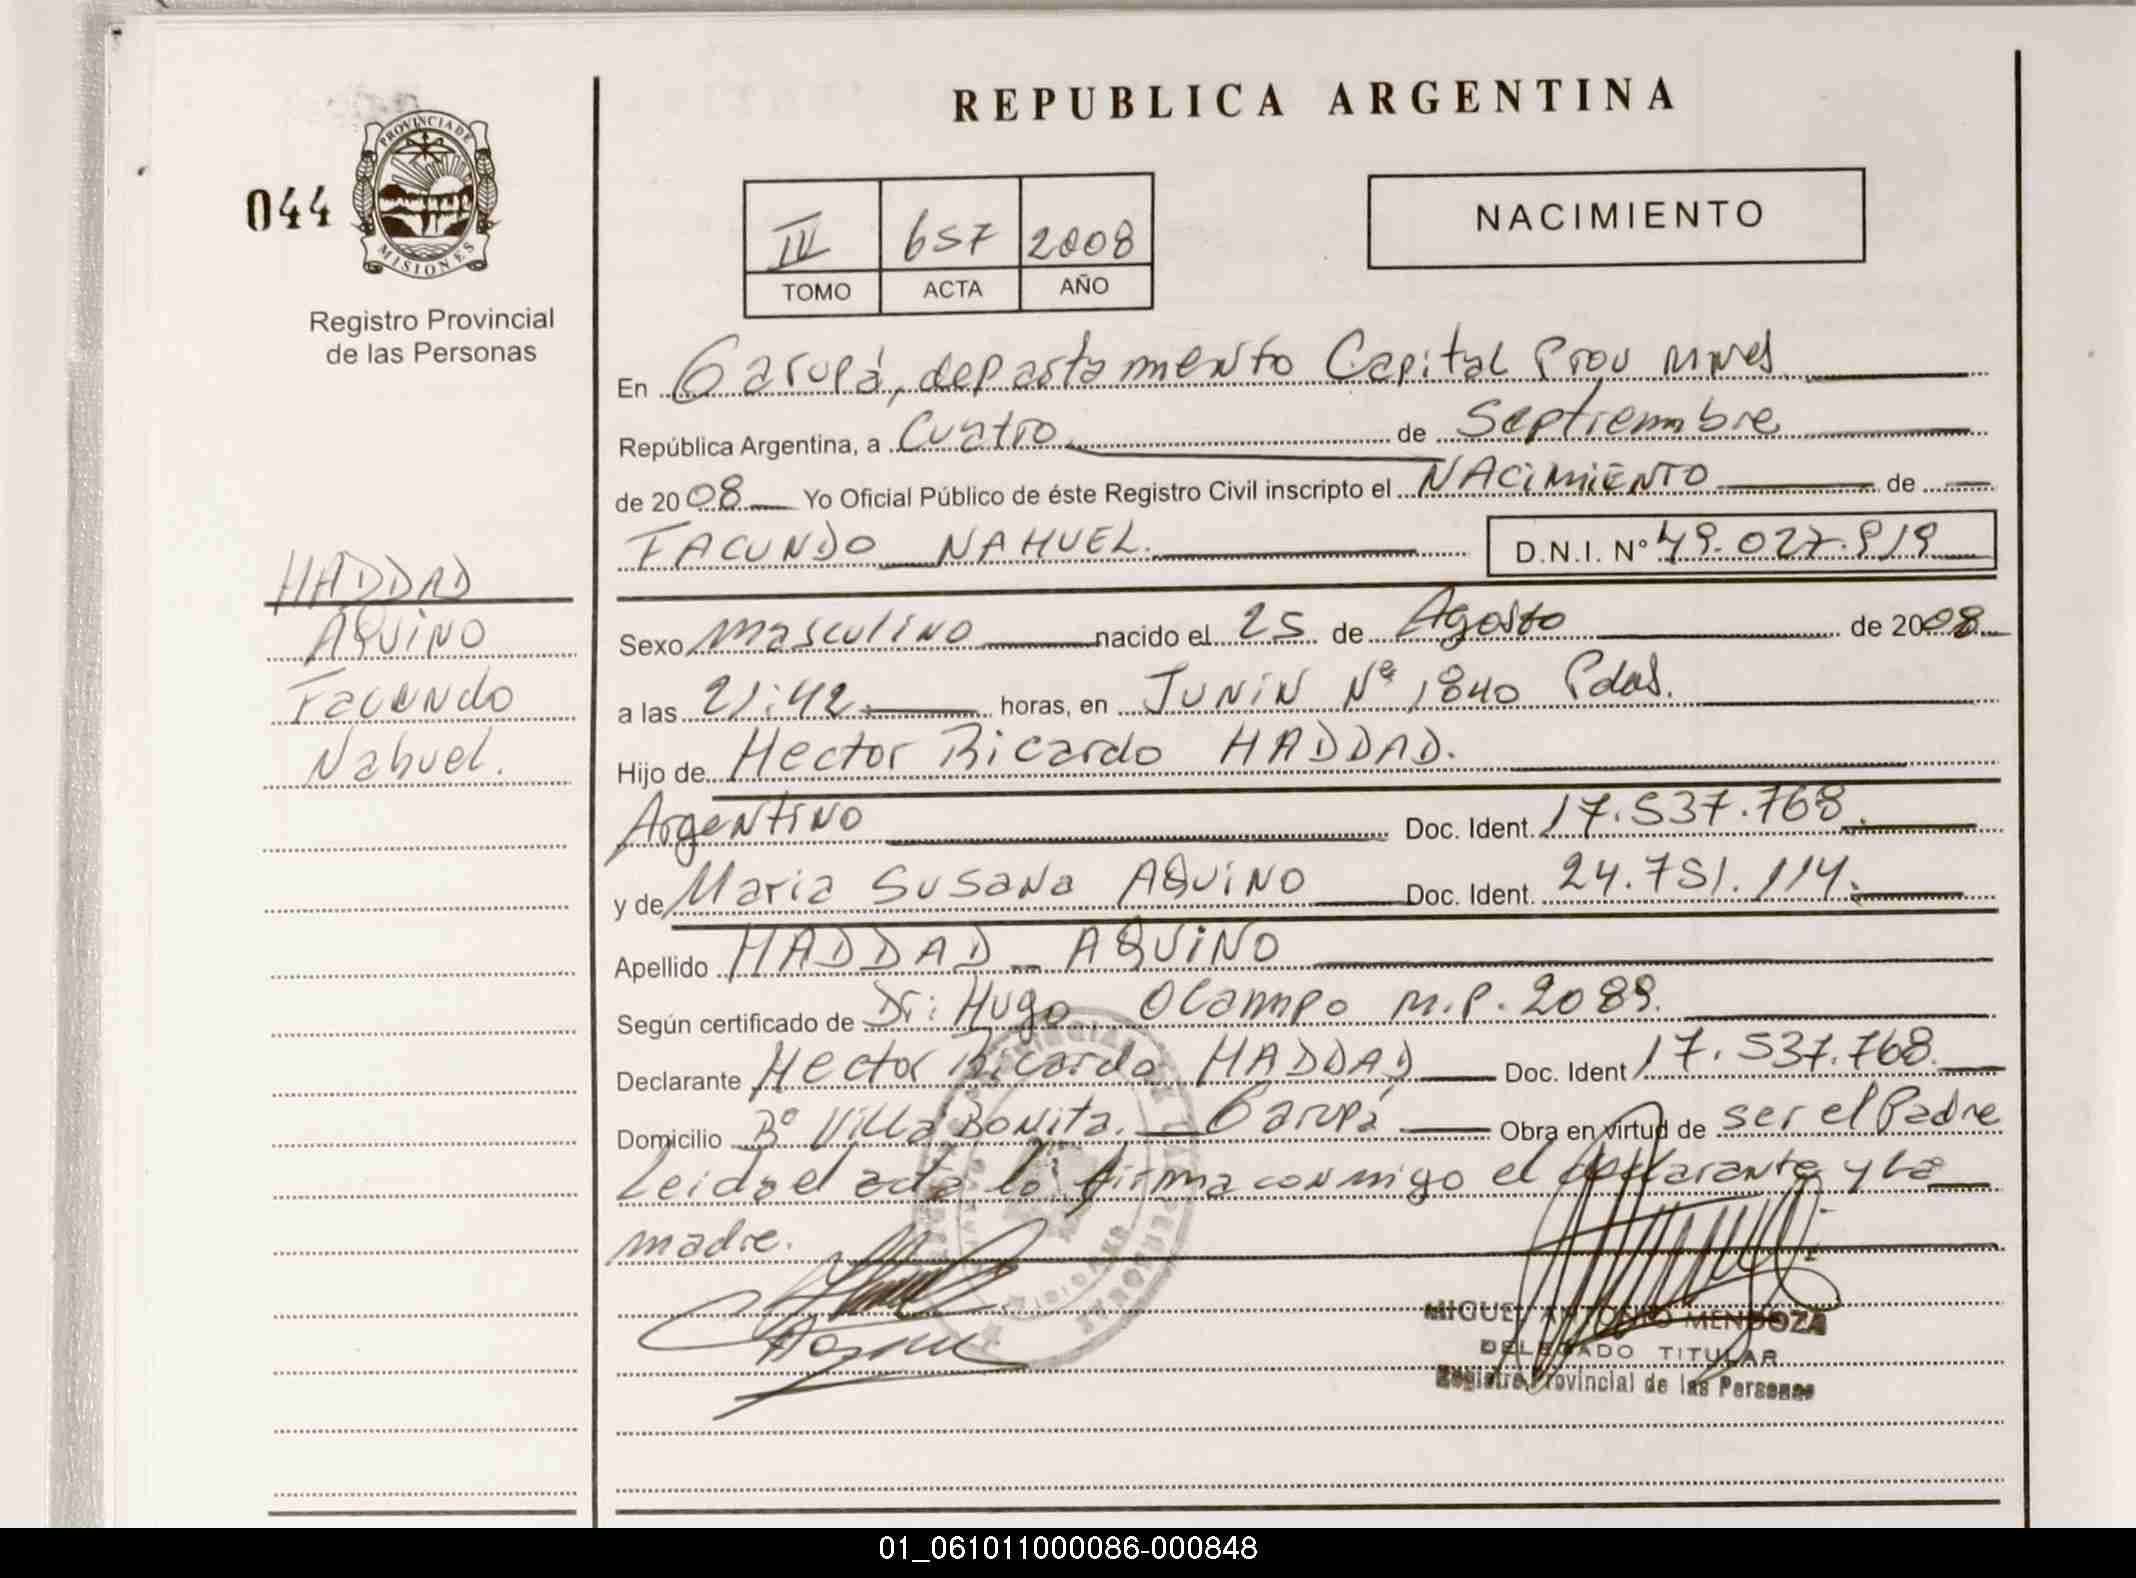 REPUBLICA ARGENTINA
PROVINCIA DE
MISIONES
044
Registro Provincial
de las Personas
III 657 2008
TOMO ACTA AÑO
NACIMIENTO
En Garupá, departamento Capital Prov Mnes
República Argentina, a Cuatro de Septiembre
de 2008 Yo Oficial Público de éste Registro Civil inscripto el NACIMIENTO de
FACUNDO NAHUEL D.N.I. Nº 49.027.819
HADDAD
AQUINO
Facundo
Nahuel.
Sexo masculino nacido el 25 de Agosto de 2008
a las 21:42 horas, en JUNIN Nº 1840 Pdas.
Hijo de Hector Ricardo HADDAD.
Argentino Doc. Ident. 17.537.768.
y de Maria Susana AQUINO Doc. Ident. 24.751.114.
Apellido HADDAD - AQUINO
Según certificado de Dr: Hugo Ocampo M.P. 2089.
Declarante Hector Ricardo HADDAD Doc. Ident 17.537.768.
Domicilio Bº Villa Bonita. Garupá Obra en virtud de ser el Padre
Leida el acta la firma conmigo el declarante y la
madre.
MIGUEL ANTONIO MENDOZA
DELEGADO TITULAR
Registro Provincial de las Personas
01_061011000086-000848